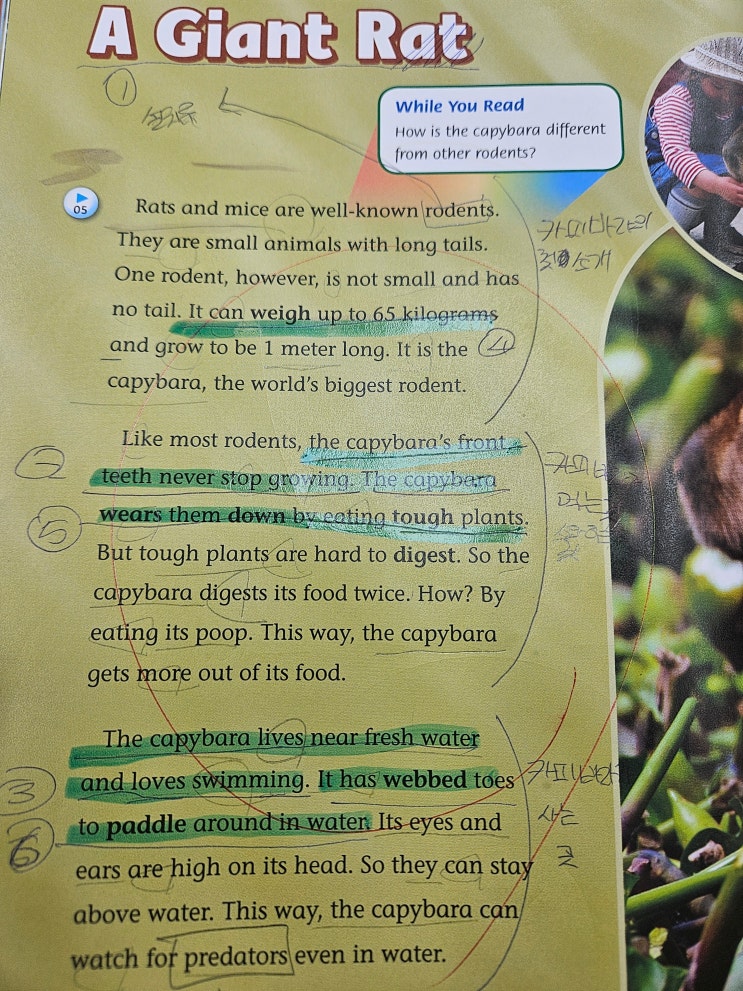 A Giant Rat
①
While You Read
How is the capybara different
from other rodents?
05
Rats and mice are well-known rodents.
They are small animals with long tails.
One rodent, however, is not small and has
no tail. It can weigh up to 65 kilograms
and grow to be 1 meter long. It is the
④
capybara, the world's biggest rodent.
카피바라의
소개
Like most rodents, the capybara's front
②
teeth never stop growing. The capybara
⑤
wears them down by eating tough plants.
But tough plants are hard to digest. So the
capybara digests its food twice. How? By
eating its poop. This way, the capybara
gets more out of its food.
카피바
먹는
The capybara lives near fresh water
③
and loves swimming. It has webbed toes
⑥
to paddle around in water. Its eyes and
ears are high on its head. So they can stay
above water. This way, the capybara can
watch for predators even in water.
카피바라가
사는
곳